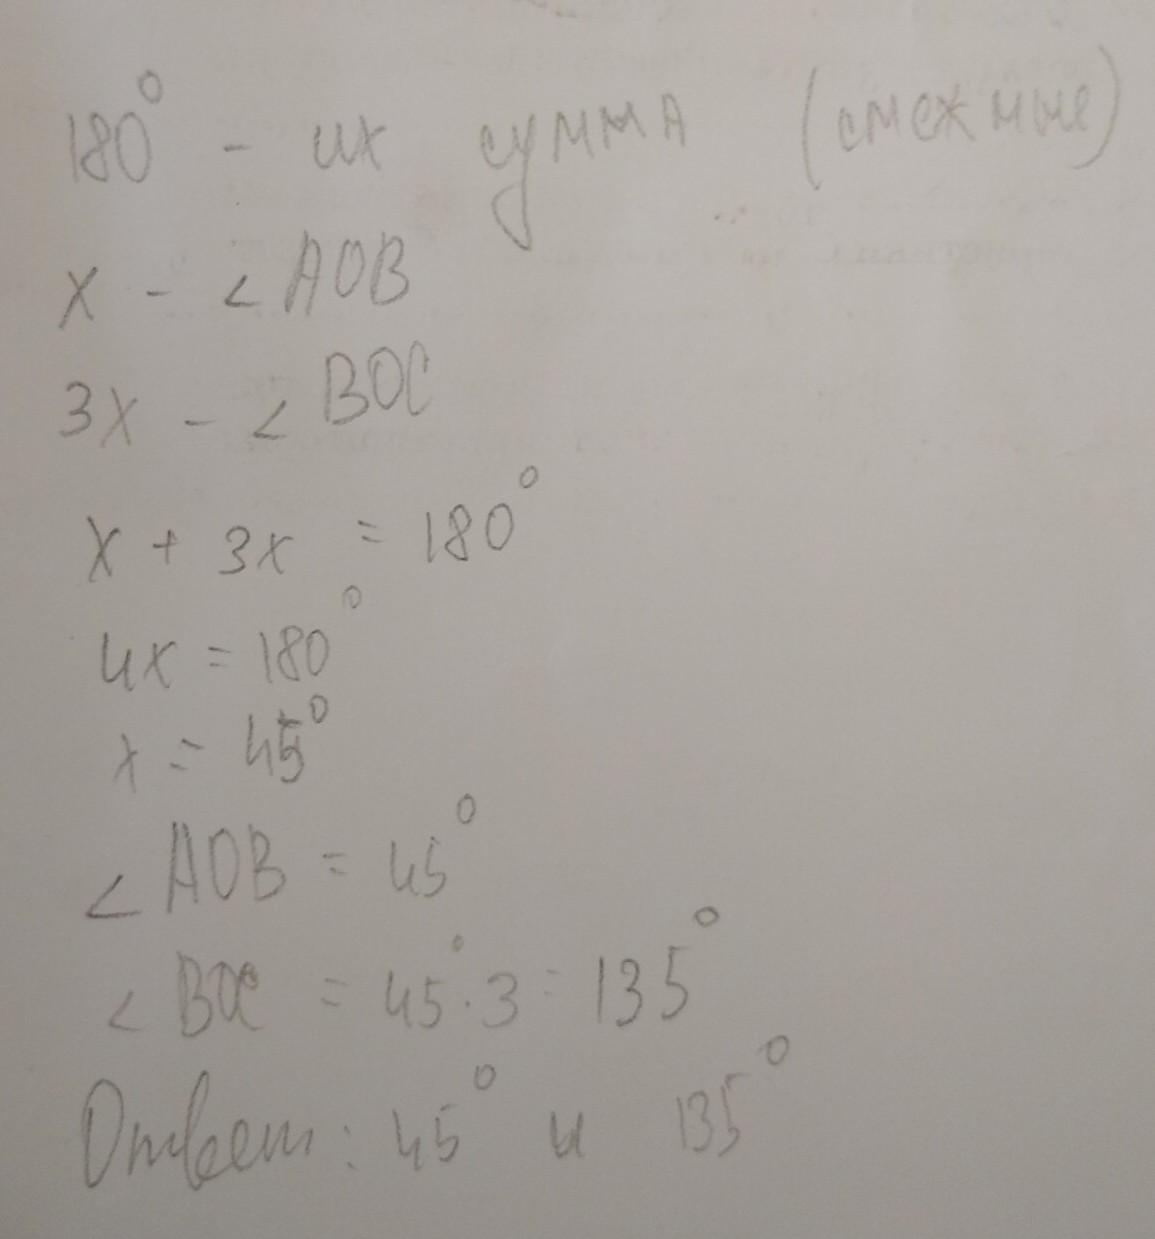 180° - их сумма (смежные)
x - ∠AOB
3x - ∠BOC
x + 3x = 180°
4x = 180°
x = 45°
∠AOB = 45°
∠BOC = 45°·3 = 135°
Ответ: 45° и 135°